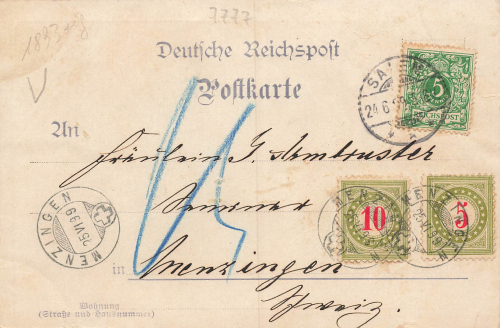 7777
1893-9
V
Deutsche Reichspost
Postkarte
5
REICHSPOST
24.6
An
Fräulein J. Armbruster
Seminar
in Menzingen
Schweiz.
15
10
5
MENZINGEN
25.VI.99
Wohnung
(Straße und Hausnummer)